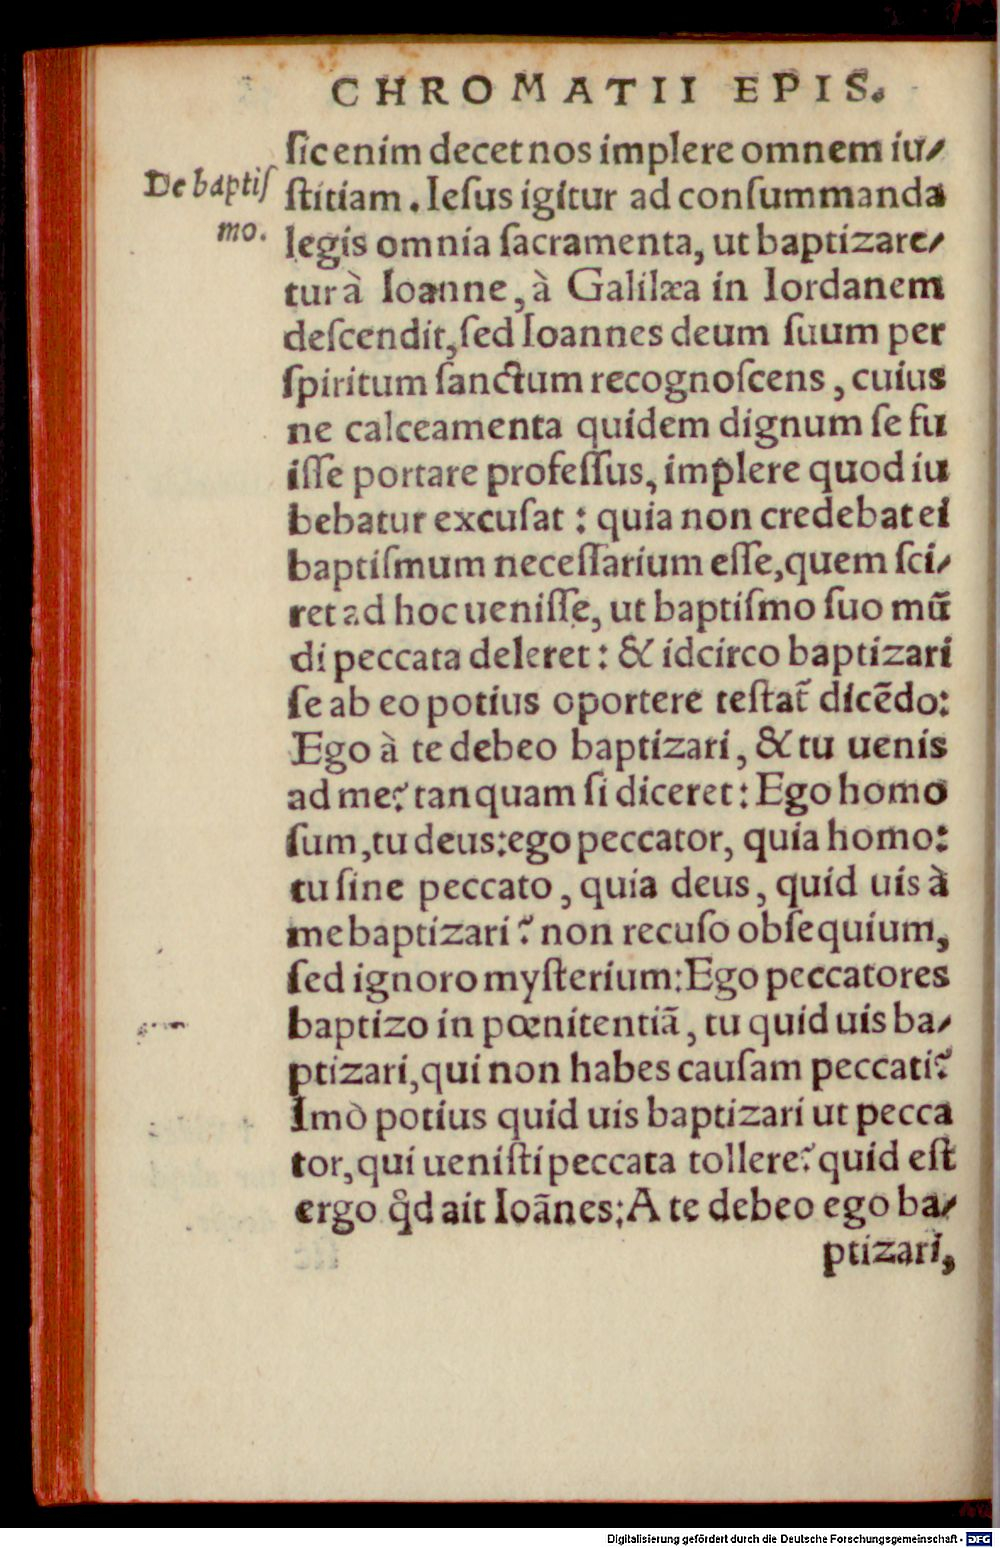 CHROMATII EPIS.
De baptiſ
mo.
ſic enim decet nos implere omnem iu⸗
ſtitiam. Ieſus igitur ad conſummanda
legis omnia ſacramenta, ut baptizare⸗
tur à Ioanne, à Galilæa in Iordanem
deſcendit, ſed Ioannes deum ſuum per
ſpiritum ſanctum recognoſcens, cuius
ne calceamenta quidem dignum ſe fu
iſſe portare profeſſus, implere quod iu
bebatur excuſat: quia non credebat ei
baptiſmum neceſſarium eſſe, quem ſci⸗
ret ad hoc ueniſſe, ut baptiſmo ſuo mū
di peccata deleret: & idcirco baptizari
ſe ab eo potius oportere teſtat̃ dicēdo:
Ego à te debeo baptizari, & tu uenis
ad me? tanquam ſi diceret: Ego homo
ſum, tu deus: ego peccator, quia homo:
tu ſine peccato, quia deus, quid uis à
me baptizari? non recuſo obſequium,
ſed ignoro myſterium: Ego peccatores
baptizo in pœnitentiā, tu quid uis ba⸗
ptizari, qui non habes cauſam peccati?
Imò potius quid uis baptizari ut pecca
tor, qui ueniſti peccata tollere? quid eſt
ergo q̊d ait Ioānes: A te debeo ego ba⸗
ptizari,
Digitalisierung gefördert durch die Deutsche Forschungsgemeinschaft - DFG